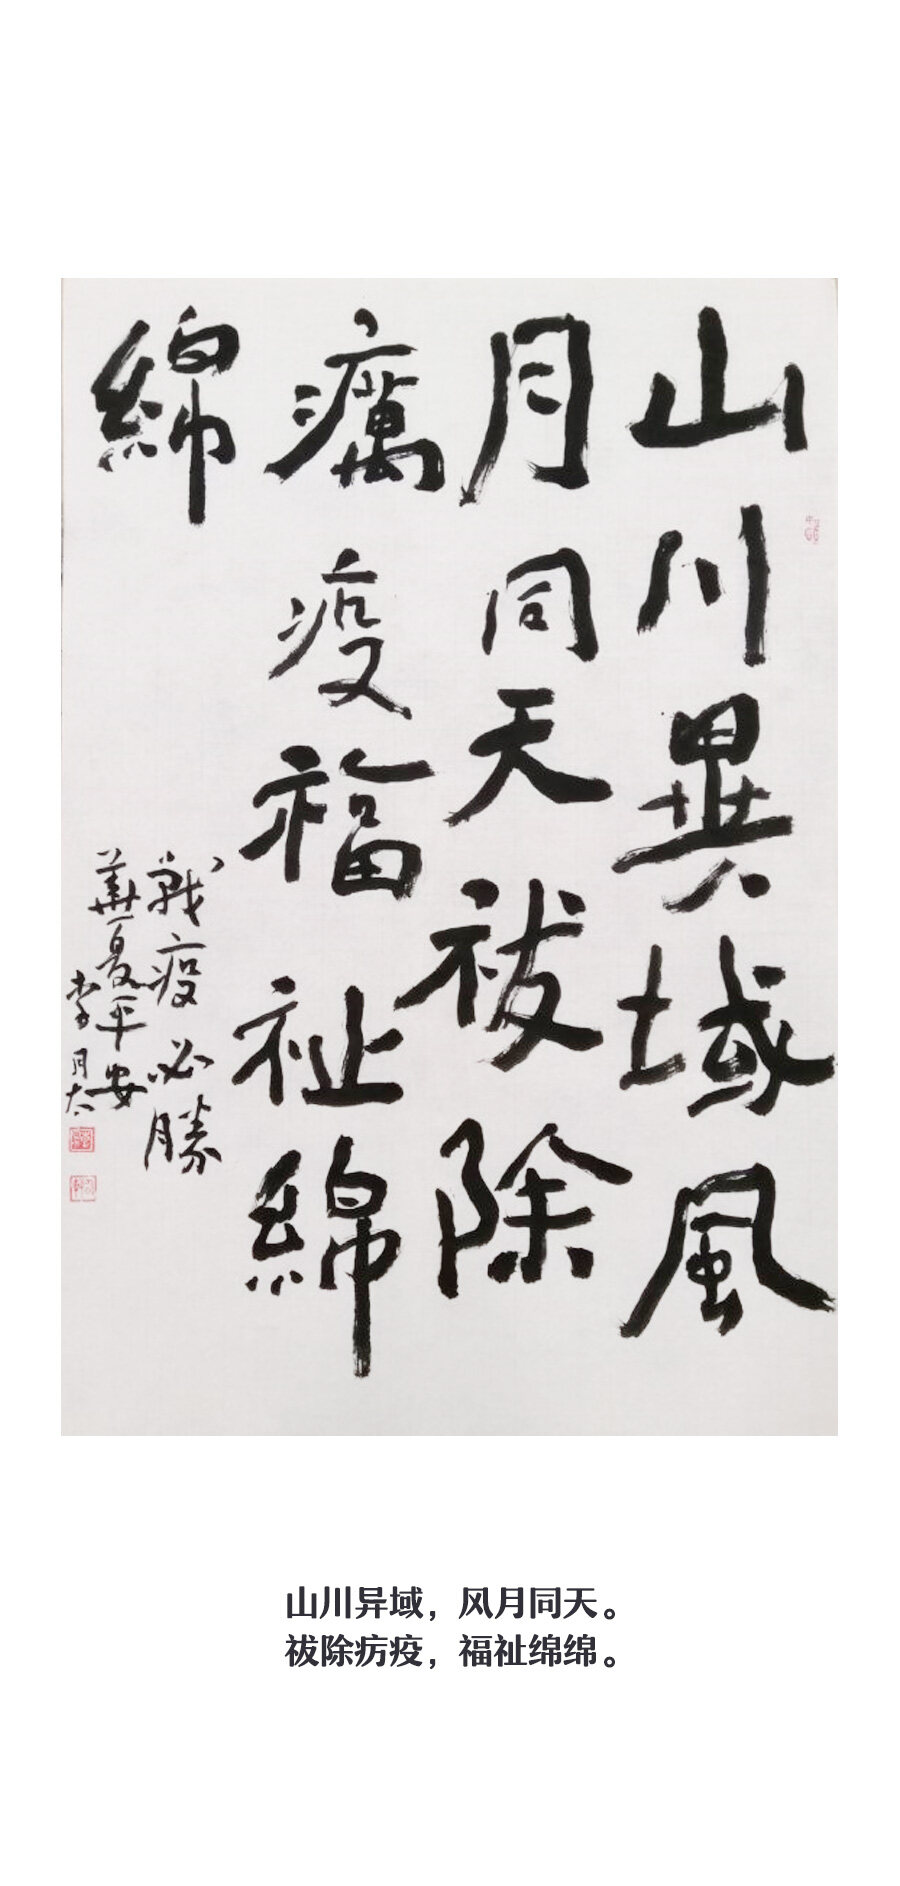 山川異域風
月同天祓除
癘疫福祉綿
綿
戰疫必勝
華夏平安
李月太
山川异域，风月同天。
祓除疠疫，福祉绵绵。